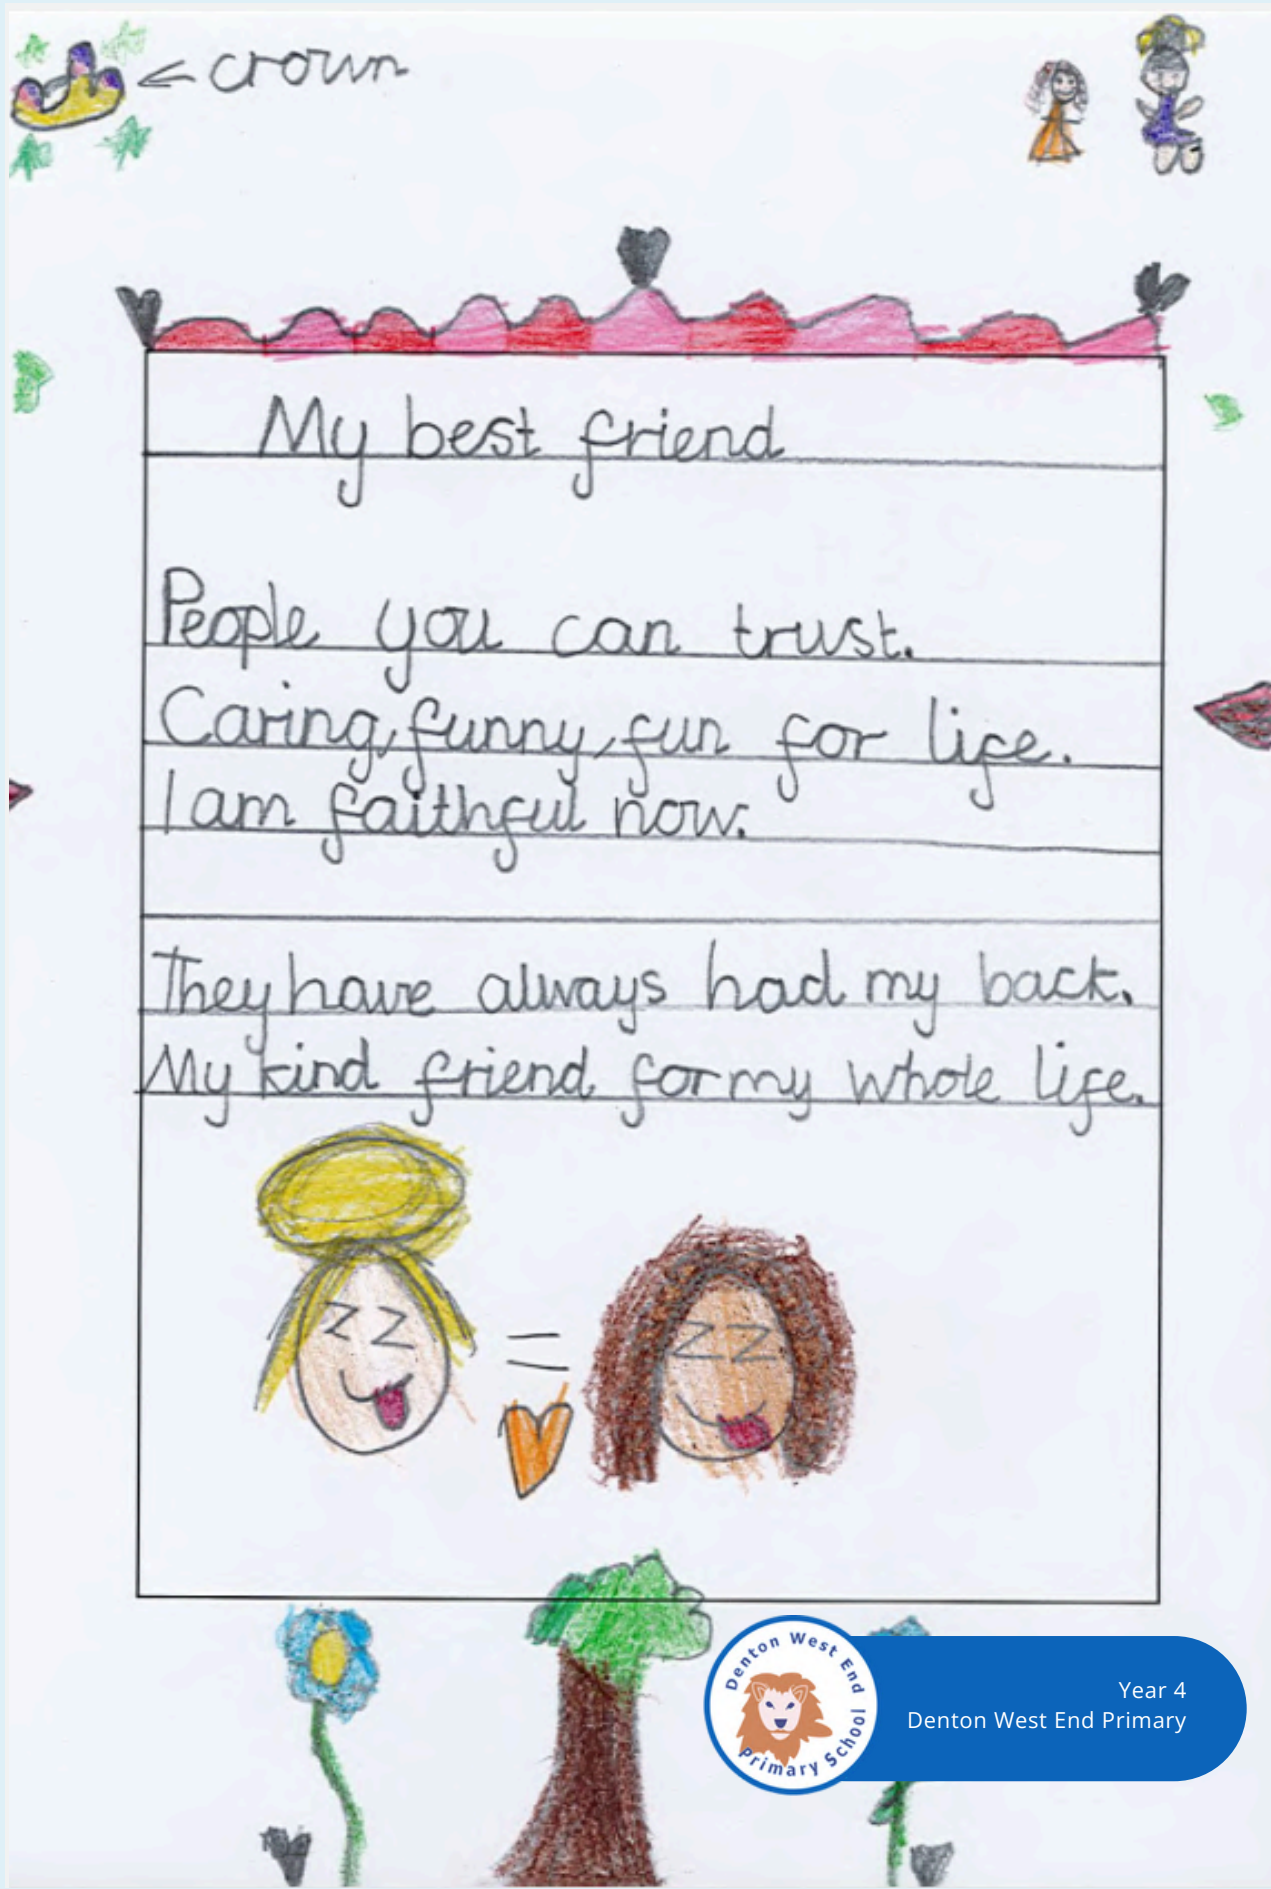 ← crown
My best friend
People you can trust.
Caring, funny, fun for life.
I am faithful now.
They have always had my back.
My kind friend for my whole life.
ZZ
ZZ
=
Denton West End
Primary School
Year 4
Denton West End Primary